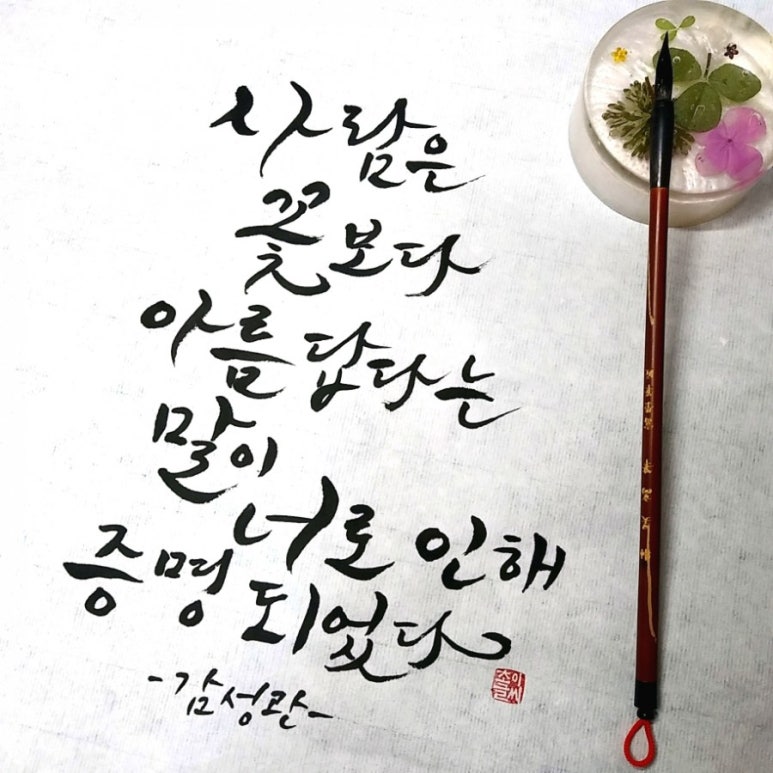 사람은
꽃보다
아름답다는
말이
너로 인해
증명되었다
-감성란-